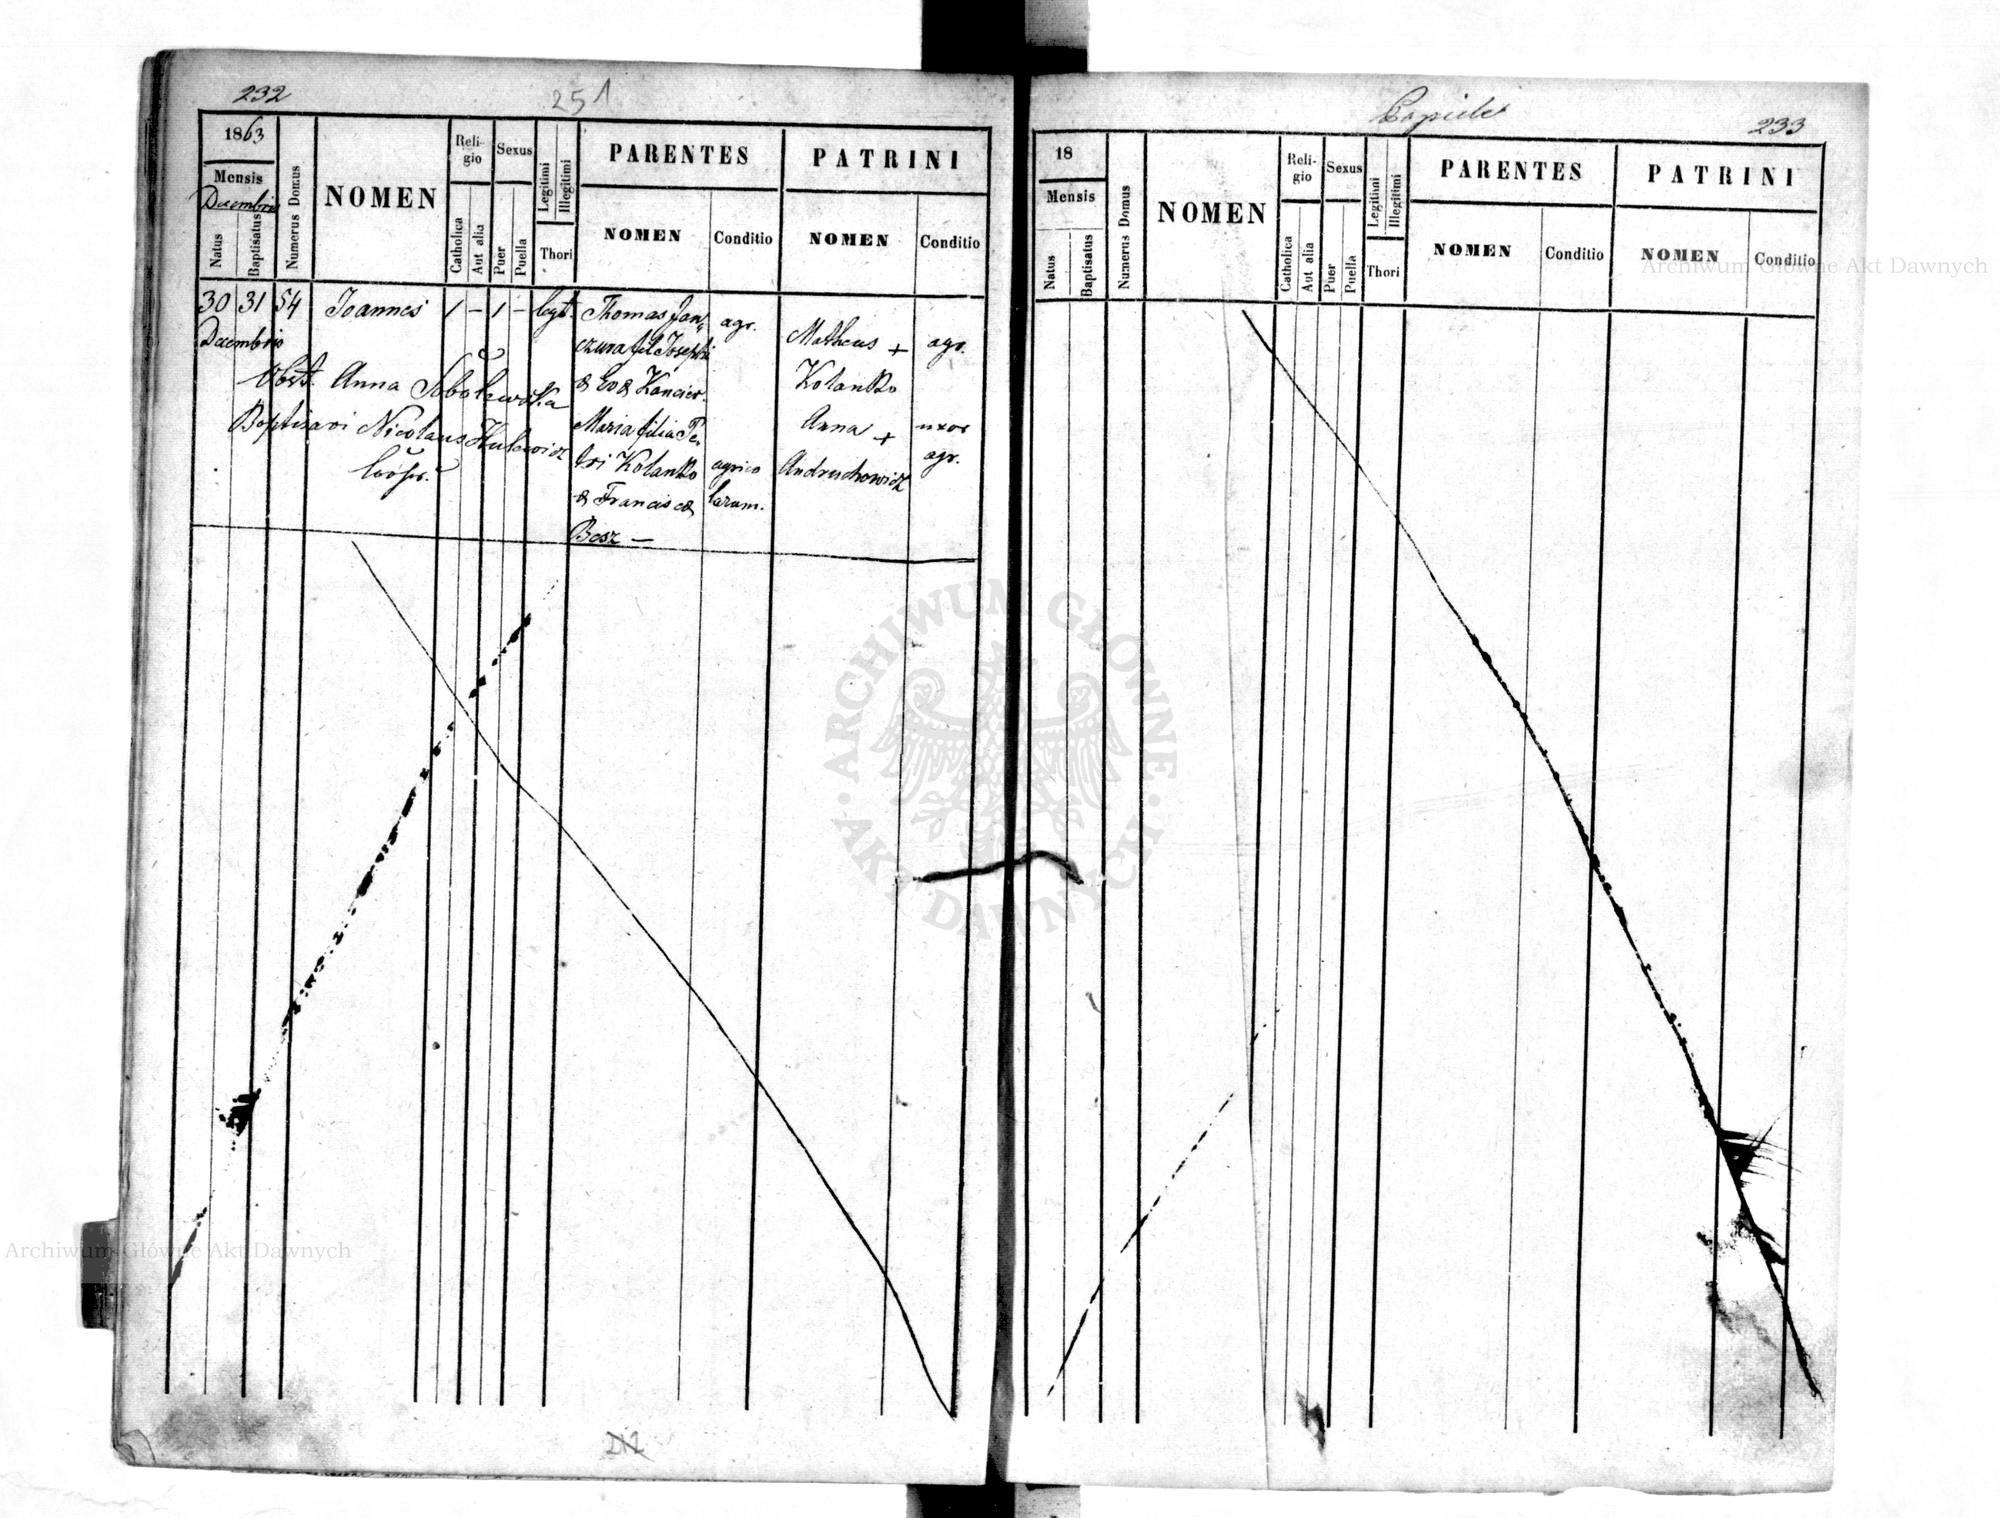 232
251
1863
Mensis
Decembris
Natus
Baptisatus
Numerus Domus
NOMEN
Reli-
gio
Catholica
Aut alia
Sexus
Puer
Puella
Legitimi
Illegitimi
Thori
PARENTES
NOMEN
Conditio
PATRINI
NOMEN
Conditio
30 31 54 Joannes 1 - 1 - legt. Thomas Jan„
Decembris
czura fil Josephi
agr.
Matheus +
agr.
& Eva Kancier.
Kolanko
Obst. Anna Sobolewska
Baptisavi Nicolaus Hulewicz
Maria filia Pe„
tri Kolanko
& Francisca
Besz —
agrico
larum.
Anna +
Andruchowicz
uxor
agr.
233
18
Mensis
Natus
Baptisatus
Numerus Domus
NOMEN
Reli-
gio
Catholica
Aut alia
Sexus
Puer
Puella
Legitimi
Illegitimi
Thori
PARENTES
NOMEN
Conditio
PATRINI
NOMEN
Conditio
Archiwum Główne Akt Dawnych
ARCHIWUM GŁÓWNE
AKT DAWNYCH
Archiwum Główne Akt Dawnych